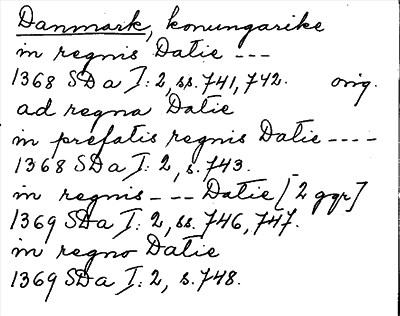 Danmark, konungarike
in regnis Datie ---
1368 SDa I: 2, ss. 741, 742. orig.
ad regna Datie
in prefatis regnis Datie ----
1368 SDa I: 2, s. 743.
in regnis --- Datie [2 ggr]
1369 SDa I: 2, ss. 746, 747.
in regno Datie
1369 SDa I: 2, s. 748.